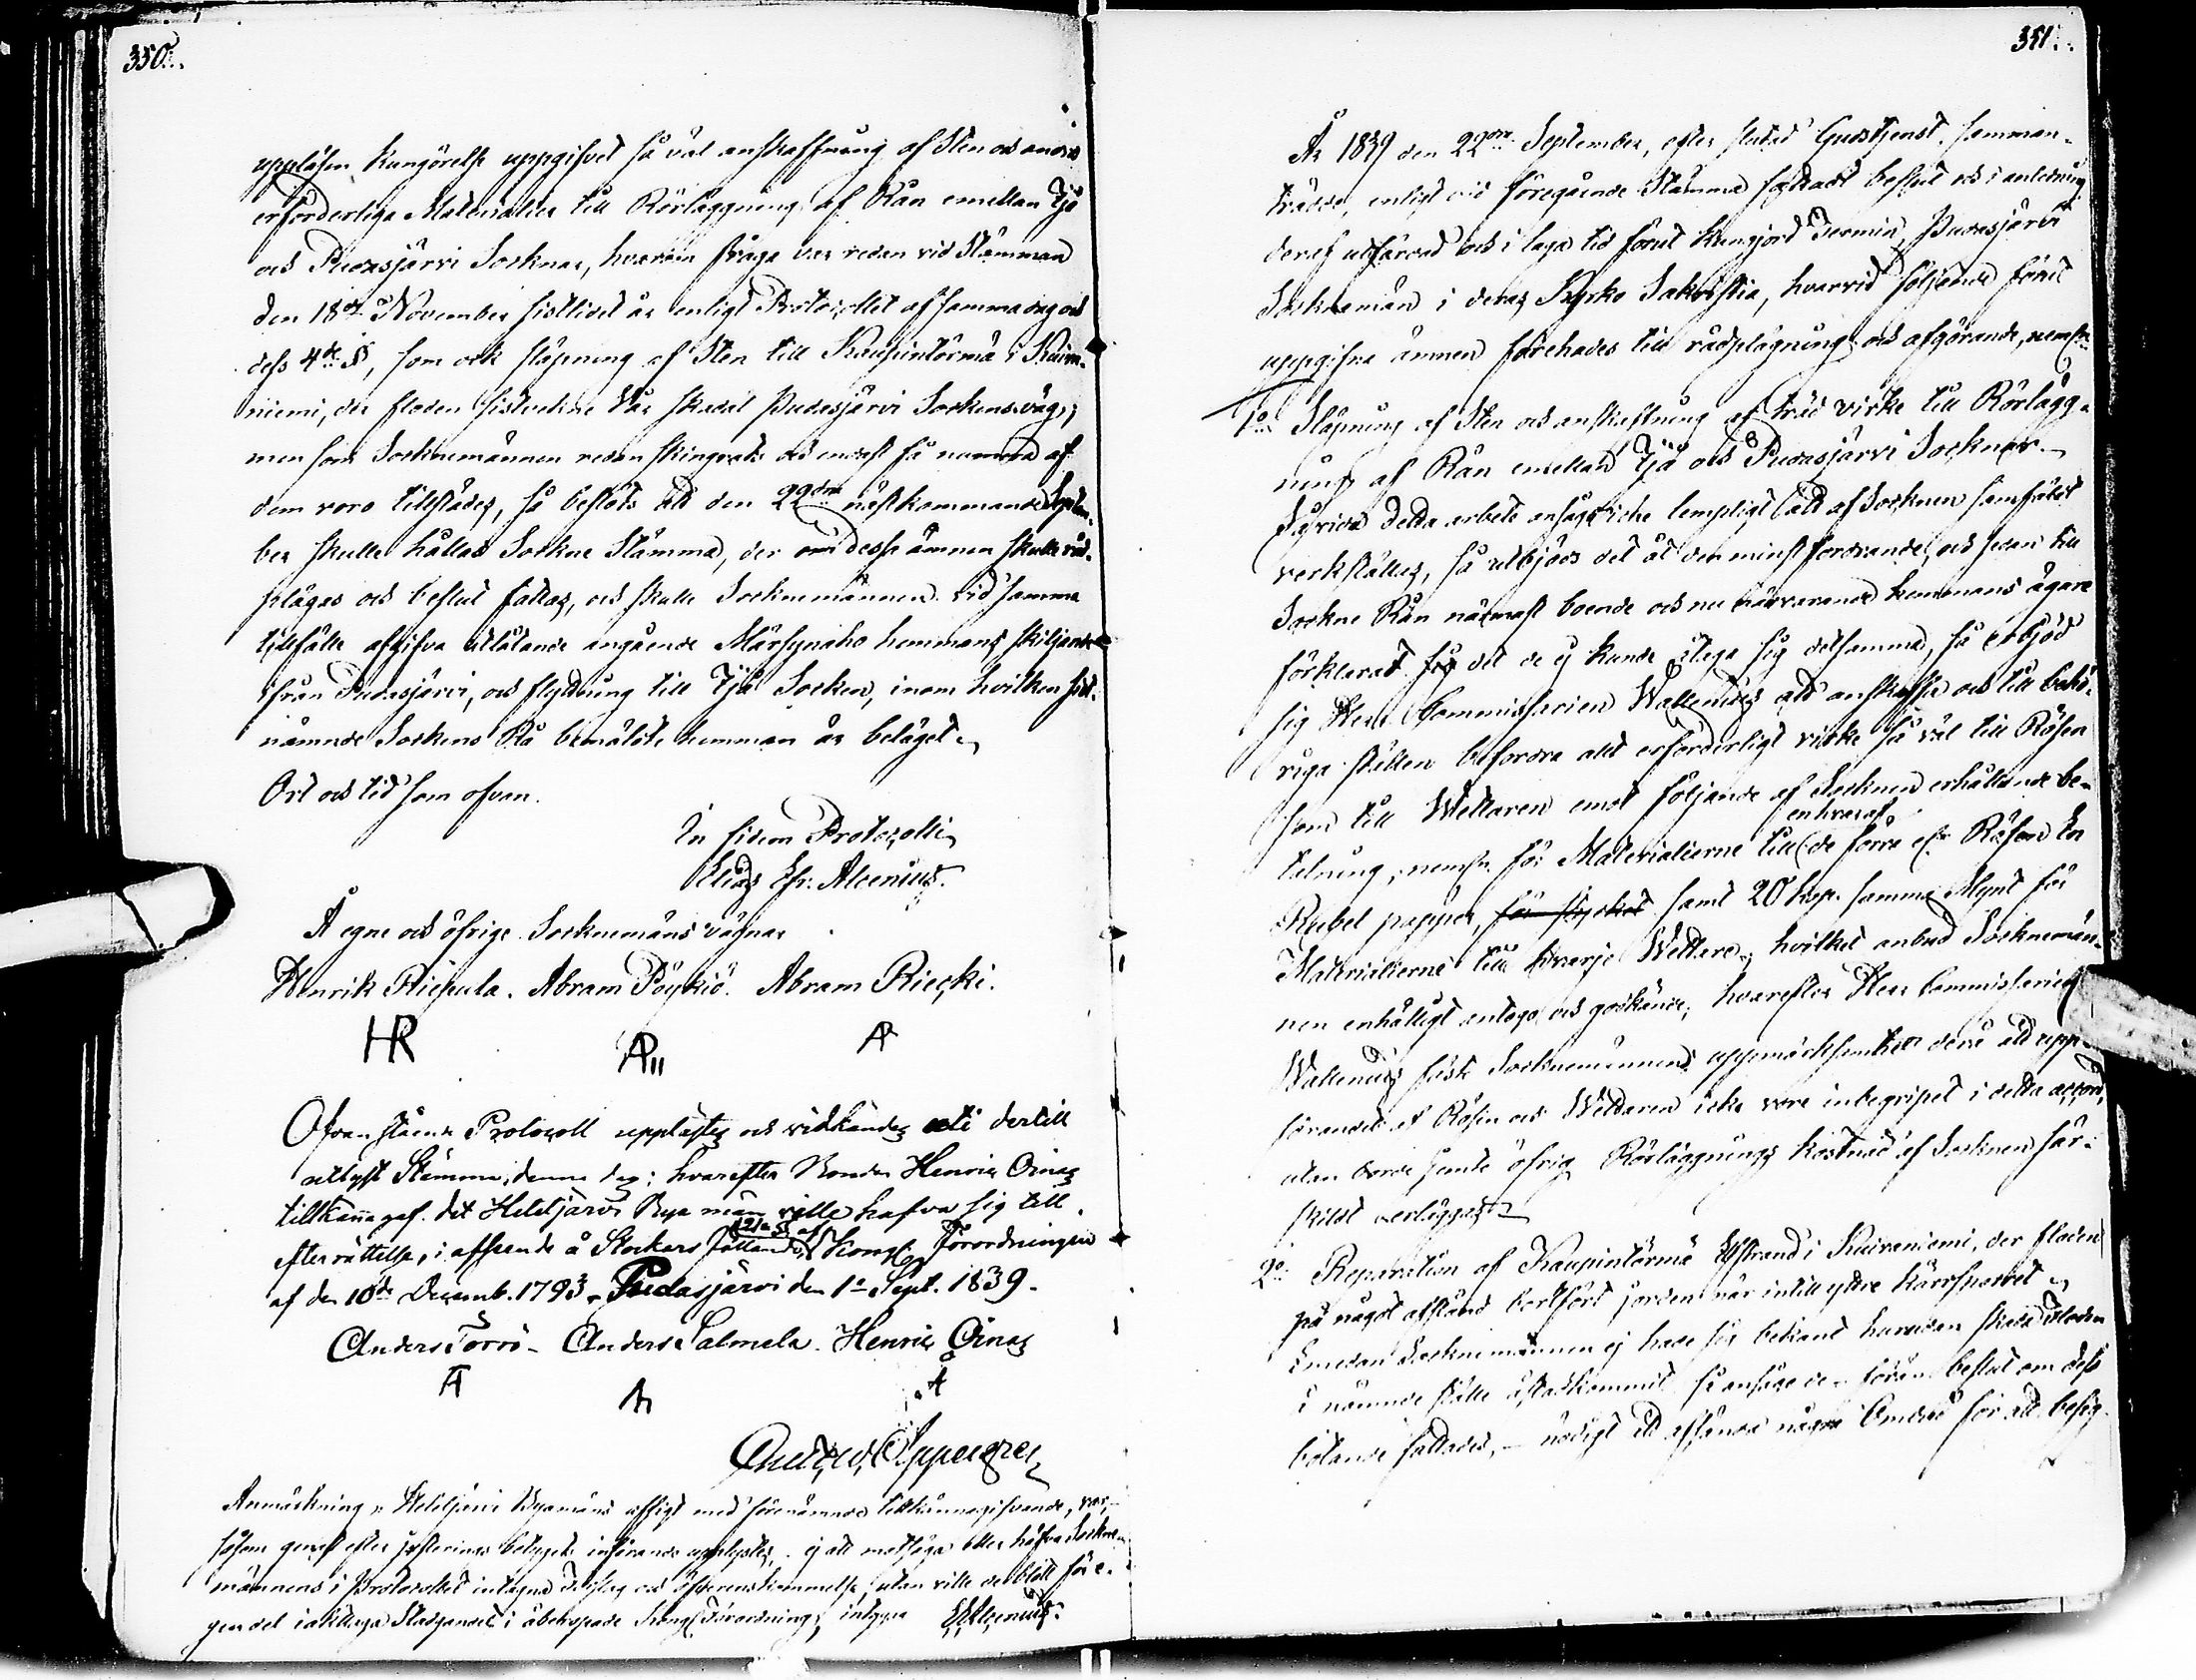 350.
uppläsen Kungörelse uppgifvet så väl anskaffning af Sten och andre
erforderliga Materialier till Rörläggning af Rån emellan Ijo
och Pudasjärvi Socknar, hvarom fråga var redan vid Stämman
den 18de November sistlidet år enligt Protocollet af samma dag och
dess 4de §, som ock släpning af Sten till Kaupintörmä i Kuiva-
niemi, der floden sistvekne Vår skadat Pudasjärvi Sockens väg;
men som Socknemännen redan skingrats och endast få numera af
dem voro tillstädes, så beslöts att den 22dra nästkommande Septem-
ber skulle hållas Sockne Stämma, der om desse ämnen skulle råd-
plägas och beslut fattas, och skulle Socknemännen vid samma
tillfälle afgifva utlåtande angående Märsynaho hemmans skiljande
ifrån Pudasjärvi, och flyttning till Ijo Socken, inom hvilken sist-
nämnde Sockens Rå bemälte hemman är beläget.
Ort och tid som ofvan.
In fidem Protocolli
Elias Efr. Alcenius.
Å egne och öfrige Socknemäns vägnar
Henrik Riepula. Abram Pöykiö. Abram Riecki.
HR AP AR
Ofvanstående Protocoll upplästes och vidkändes uti dertill
utlyst Stämma denna dag; hvarefter Bonden Henric Oinas
tillkännagaf det Hetejärvi Bya män ville hafva sig till
efterrättelse, i afseende å Stockars fällande, 12te § af Kongl. Förordningen
af den 10de Decemb. 1793. Pudasjärvi den 1a Sept. 1839.
Anders Törrö - Anders Salmela. Henric Oinas
Anmärkning. Hetejärvi Byamäns afsigt med förenämnde tillkännagifvande, var,
såsom genast efter justerings betygets införande upplystes, ej att motsäga eller häfva Sockne-
männens i Protocollet intagna beslut och öfverenskommelse, utan ville de blott för e-
gen del iakttaga Stadgandet i åberopade Kongl. Förordning; intygar E. Alcenius.
351.
År 1839 den 22dra September, efter slutad Gudstjenst, samman-
trädde, enligt vid föregående Stämma fattadt beslut och i anledning
deraf utfärdad och i laga tid förut kungjord Termin, Pudasjärvi
Socknemän i deras Kyrko Sakristia, hvarvid följande förut
uppgifne ämnen förehades till rådplägning och afgörande, nemln
1o Släpning af Sten och anskaffning af träd virke till Rörlägg-
ning af Rån emellan Ijo och Pudasjärvi Socknar.
Sedan detta arbete ansågs icke lempligt att af Socknen samfäldt
verkställas, så utbjöds det åt den minst fordrande, och sedan till
Sockne Rån närmast boende och nu närvarande hemmans ägare
förklarat det de ej kunde åtaga sig detsamma, så erbjöd
sig Herr Commissarien Wallenius att anskaffa och till behö-
riga ställen befordra allt erforderligt virke så väl till Rösen
som till Wettaren emot följande af Socknen erhållande be-
talning, nemln. för Materialierne till en hvar af de förra eller Rösen En
Rubel papper, för stycket samt 20 kop. samma Mynt för
Materialierne till hvarje Wettare; hvilket anbud Socknemän-
nen enhälligt antogo och godkände; hvarefter Herr Commissarien
Wallenius fäste Socknemännens uppmärksamhet derå att upp-
förandet af Rösen och Wettaren icke vore inbegripet i detta accord,
utan borde jemte öfrig Rörläggnings kostnad af Socknen sär-
skildt erläggas.
2o Reparation af Kaupintörmä Elfstrand i Kuivaniemi, der floden
på något afstånd bortfört jorden när intill yttre kärrspåret.
Emedan Socknemännen ej hade sig bekant hurudan skada floden
i nämnde ställe åstadkommit, så ansågo de, förän beslut om dess
botande fattades, nödigt att afsända några Ombud för att besig-